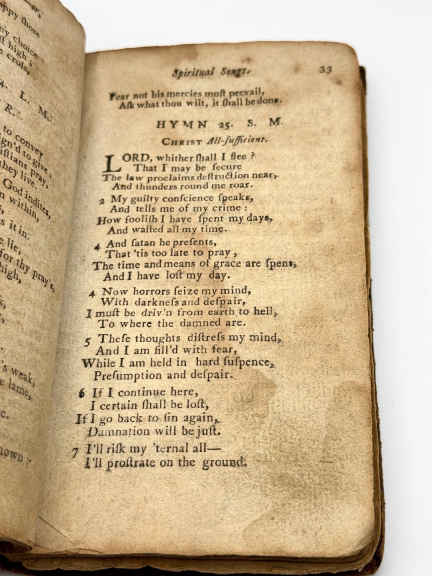 my choice
L. M.
R.
to convey
to give,
pray,
they live.
God indites,
within,
it in.
lie,
for thy pray'r,
high,
weak,
lame,
Spiritual Songs. 33
Fear not his mercies muſt prevail,
Aſk what thou wilt, it ſhall be done.
HYMN 25. S. M.
CHRIST All-ſufficient.
LORD, whither ſhall I flee?
That I may be ſecure
The law proclaims deſtruction near,
And thunders round me roar.
2 My guilty conſcience ſpeaks,
And tells me of my crime:
How fooliſh I have ſpent my days,
And waſted all my time.
4 And satan he preſents,
That 'tis too late to pray,
The time and means of grace are ſpent,
And I have loſt my day.
4 Now horrors ſeize my mind,
With darkneſs and deſpair,
I muſt be driv'n from earth to hell,
To where the damned are.
5 Theſe thoughts diſtreſs my mind,
And I am fill'd with fear,
While I am held in hard ſuſpence,
Preſumption and deſpair.
6 If I continue here,
I certain ſhall be loſt,
If I go back to ſin again,
Damnation will be juſt.
7 I'll riſk my 'ternal all—
I'll proſtrate on the ground.